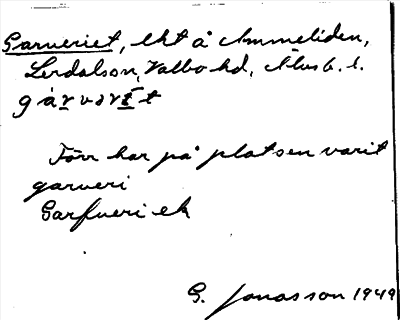 Garveriet, lht å Ammeliden,
Lerdalson, Valbo hd, Älvsb. l.
gàrvərɩ̀t
Förr har på platsen varit
garveri
Garfveri ek
G. Jonasson 1949